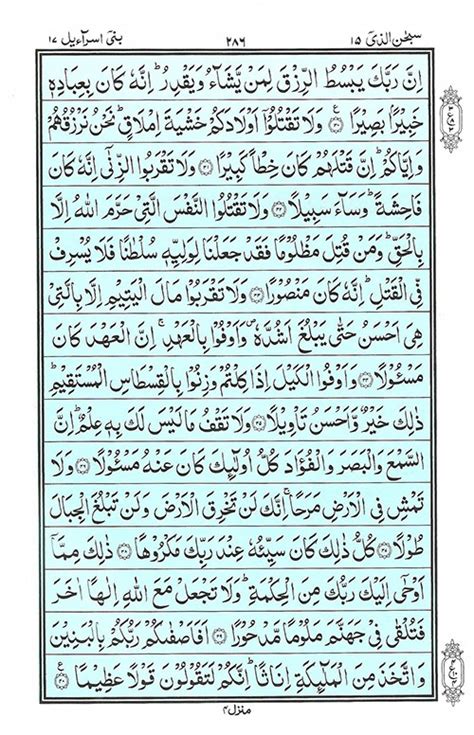 سبحٰن الذیٓ ۱۵ ۲۸۶ بنیٓ اسرآءیل ۱۷
اِنَّ رَبَّكَ يَبۡسُطُ الرِّزۡقَ لِمَنۡ يَّشَآءُ وَيَقۡدِرُ ؕ اِنَّهٗ كَانَ بِعِبَادِهٖ
خَبِيۡرًۢا بَصِيۡرًا ۝۳۰ وَلَا تَقۡتُلُوۡۤا اَوۡلَادَكُمۡ خَشۡيَةَ اِمۡلَاقٍ ؕ نَحۡنُ نَرۡزُقُهُمۡ
وَاِيَّاكُمۡ ؕ اِنَّ قَتۡلَهُمۡ كَانَ خِطۡاً كَبِيۡرًا ۝۳۱ وَلَا تَقۡرَبُوا الزِّنٰٓى اِنَّهٗ كَانَ
فَاحِشَةً ؕ وَسَآءَ سَبِيۡلًا ۝۳۲ وَلَا تَقۡتُلُوا النَّفۡسَ الَّتِىۡ حَرَّمَ اللّٰهُ اِلَّا
بِالۡحَقِّ ؕ وَمَنۡ قُتِلَ مَظۡلُوۡمًا فَقَدۡ جَعَلۡنَا لِوَلِيِّهٖ سُلۡطٰنًا فَلَا يُسۡرِفۡ
فِّى الۡقَتۡلِ ؕ اِنَّهٗ كَانَ مَنۡصُوۡرًا ۝۳۳ وَلَا تَقۡرَبُوۡا مَالَ الۡيَتِيۡمِ اِلَّا بِالَّتِىۡ
هِىَ اَحۡسَنُ حَتّٰى يَبۡلُغَ اَشُدَّهٗ ۪ وَاَوۡفُوۡا بِالۡعَهۡدِ ۚ اِنَّ الۡعَهۡدَ كَانَ
مَسۡـُٔوۡلًا ۝۳۴ وَاَوۡفُوا الۡكَيۡلَ اِذَا كِلۡتُمۡ وَزِنُوۡا بِالۡقِسۡطَاسِ الۡمُسۡتَقِيۡمِ ؕ
ذٰلِكَ خَيۡرٌ وَّاَحۡسَنُ تَاۡوِيۡلًا ۝۳۵ وَلَا تَقۡفُ مَا لَـيۡسَ لَكَ بِهٖ عِلۡمٌ ؕ اِنَّ
السَّمۡعَ وَالۡبَصَرَ وَالۡفُؤَادَ كُلُّ اُولٰۤٮِٕكَ كَانَ عَنۡهُ مَسۡـُٔوۡلًا ۝۳۶ وَلَا
تَمۡشِ فِى الۡاَرۡضِ مَرَحًا ۚ اِنَّكَ لَنۡ تَخۡرِقَ الۡاَرۡضَ وَلَنۡ تَبۡلُغَ الۡجِبَالَ
طُوۡلًا ۝۳۷ كُلُّ ذٰلِكَ كَانَ سَيِّئُهٗ عِنۡدَ رَبِّكَ مَكۡرُوۡهًا ۝۳۸ ذٰلِكَ مِمَّاۤ
اَوۡحٰۤى اِلَيۡكَ رَبُّكَ مِنَ الۡحِكۡمَةِ ؕ وَلَا تَجۡعَلۡ مَعَ اللّٰهِ اِلٰهًا اٰخَرَ
فَتُلۡقٰى فِىۡ جَهَنَّمَ مَلُوۡمًا مَّدۡحُوۡرًا ۝۳۹ اَفَاَصۡفٰٮكُمۡ رَبُّكُمۡ بِالۡبَنِيۡنَ
وَاتَّخَذَ مِنَ الۡمَلٰۤٮِٕكَةِ اِنَاثًا ؕ اِنَّكُمۡ لَتَقُوۡلُوۡنَ قَوۡلًا عَظِيۡمًا ۝۴۰
منزل ۴